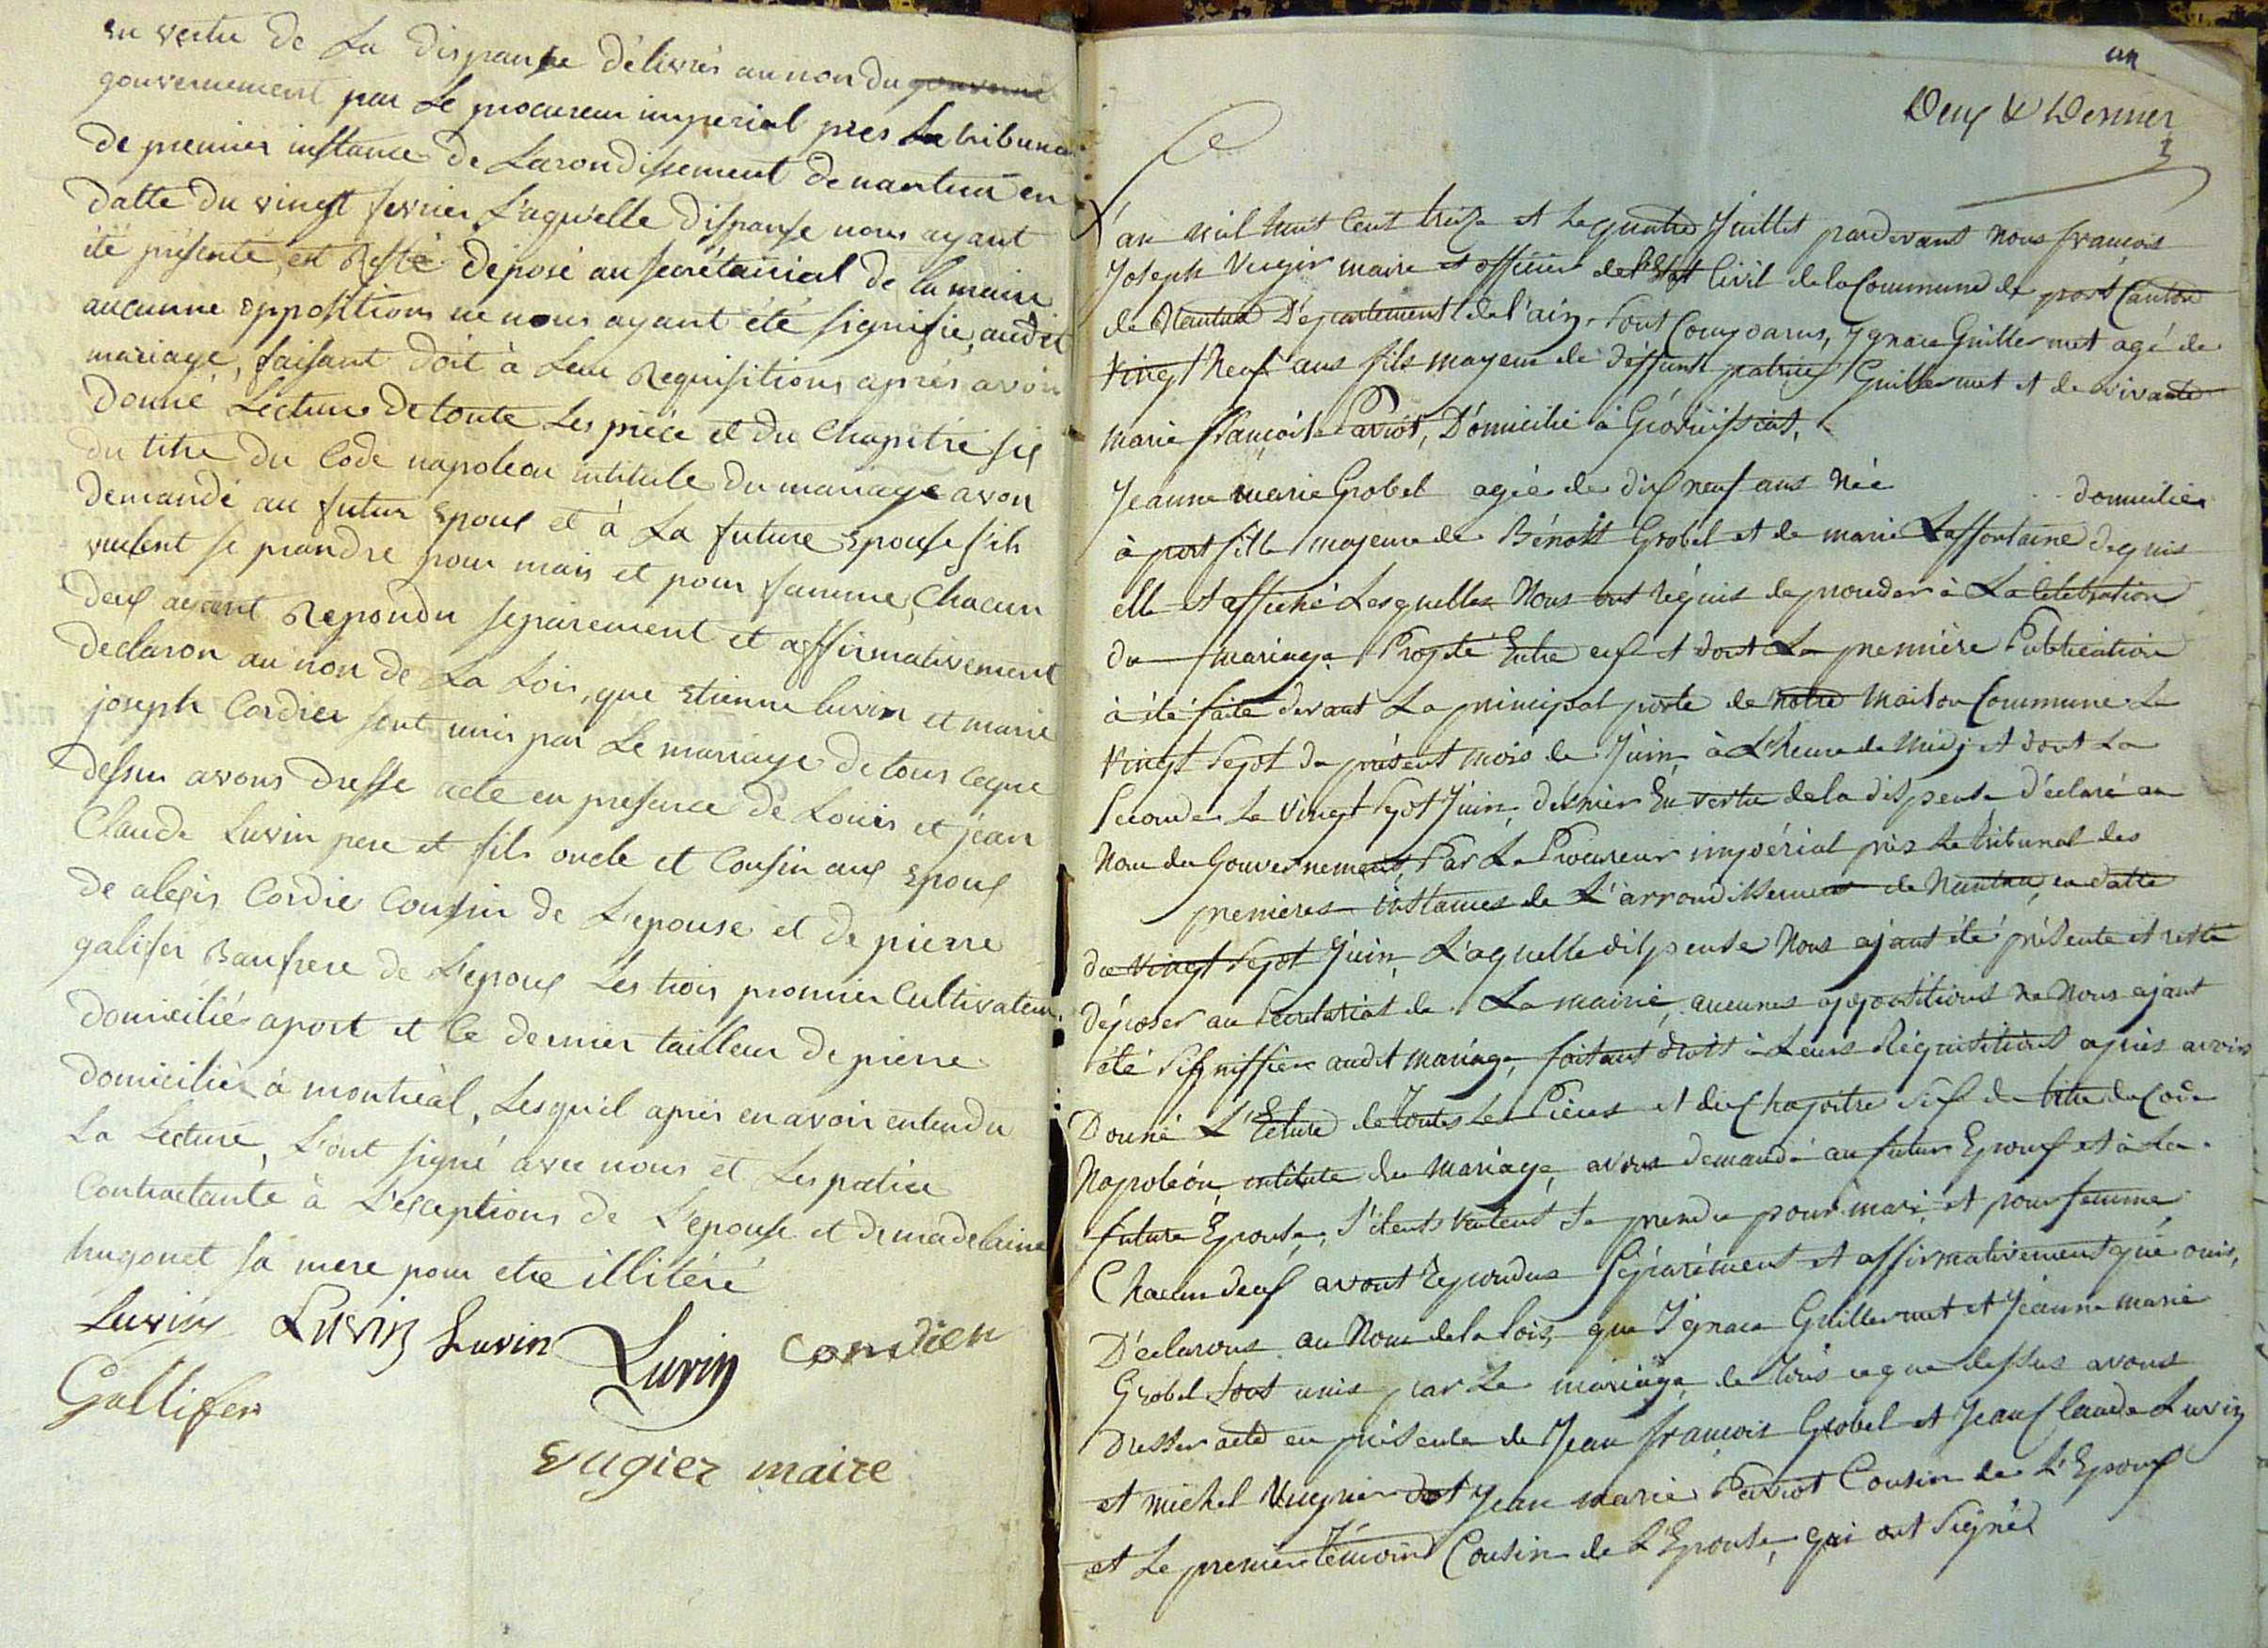 en vertu de La dispanse délivrés au non du gouverne
gouvernement par Le procureur imperial pres La tribuna
de premier instance de Larondissement de nantua en
datte du vingt fevrier L'aquelle dispanse nous ayant
été présenté, est Resté déposé au secrétairiat de la mairie
aucunne oppositions ne nous ayant été signifie, audit
mariage, faisant doit à Leur Requisitions après avoir
donné Lecture de toute Les pièce et du Chapitre six
du titre du Code napoleon intitule du mariage avon
demandé au futur Epoux et à La future Epouse s'ils
veulent se prandre pour mari et pour famme, Chacun
deux ayant Repondu séparement et affirmativement
declaron au non de La Loi, que Etienne Luvin et marie
joseph Cordier sont unis par Le mariage de tous ceque
dessus avons dresse acte en presence de Louis et jean
Claude Luvin pere et fils oncle et Cousin aux Epoux
de alexis Cordie Cousin de L'epouse et de pierre
galifer Baufrere de L'epoux Les trois promier Cultivateur
domicilié aport et Le dernier tailleur de pierre
domiciliés à montréal, Lesquil après en avoir entendu
La Lecture, L'ont signé avec nous et Les patier
Contractante à L'exceptions de L'epouse et de madelaine
hugonet sa mere pour etre illitéré
Luvin Luvin Luvin Luvin Cordier
Gallifer
Eugier maire
un
Deux & Dernier
L'an mil huit Cent treize et Le quatre Juillet pardevant nous françois
Joseph Vugier maire et officier de l'Etat Civil de la Commune de port Canton
de Nantua Département de l'ain, Sont Comparus, Ygnace Guillermet agé de
Vingt Neuf ans fils mayeur de déffunt patrice Guillermet et de vivante
marie françoise Parriot, Domicilié à Géovreissiat,
Jeanne marie Grobel agée de dix neuf ans Née domiciliée
à port fille mayeure de Bénoit Grobel et de marie Laffontaine
elle et affiché Lesquelles Nous ont réquis de proceder à La Celebration
du mariage Projeté Entre eux et dont La première Publication
à été faite devant La principal porte de Notre Maison Commune Le
Vingt Sept du présent mois de Juin à L'heure de Midi et dont La
Seconde Le Vingt Sept Juin dernier En vertu de la dispense déclaré au
Nom du Gouvernement, Par Le Procureur impérial près Le tribunal des
premieres instances de L'arrondissement de Nantua, en datte
du Vingt Sept Juin L'aquelle dispense Nous ajant été présente et reste
déposer au Secretariat de La mairie, aucunes oppositions ne Nous ajant
été Signiffiér audit mariage, faisant droit à Leurs Réquisitions après avoir
Donné L'Ecture de toutes Les Pièces et du Chapitre Six du titre du Code
Napoléon, intitule du Mariage, avons demandé au futur Epoux et à La
future Epouse, S'ilents veulent Se prendre pour mari et pour femme
Chacun deux avont Repondus Séparément et affirmativement que ouis,
Déclarons au Nom de la loi, que Ignace Guillermet et Jeanne marie
Grobel Sont unis par Le mariage de tous ceque dessus avons
Dresser acte en présente de Jean françois Grobel et Jean Claude Luvin
et michel Vugnier et Jean marie Parriot Cousin de L'Epoux
et Le premier témoins Cousin de L'Epouse, qui ont Signés